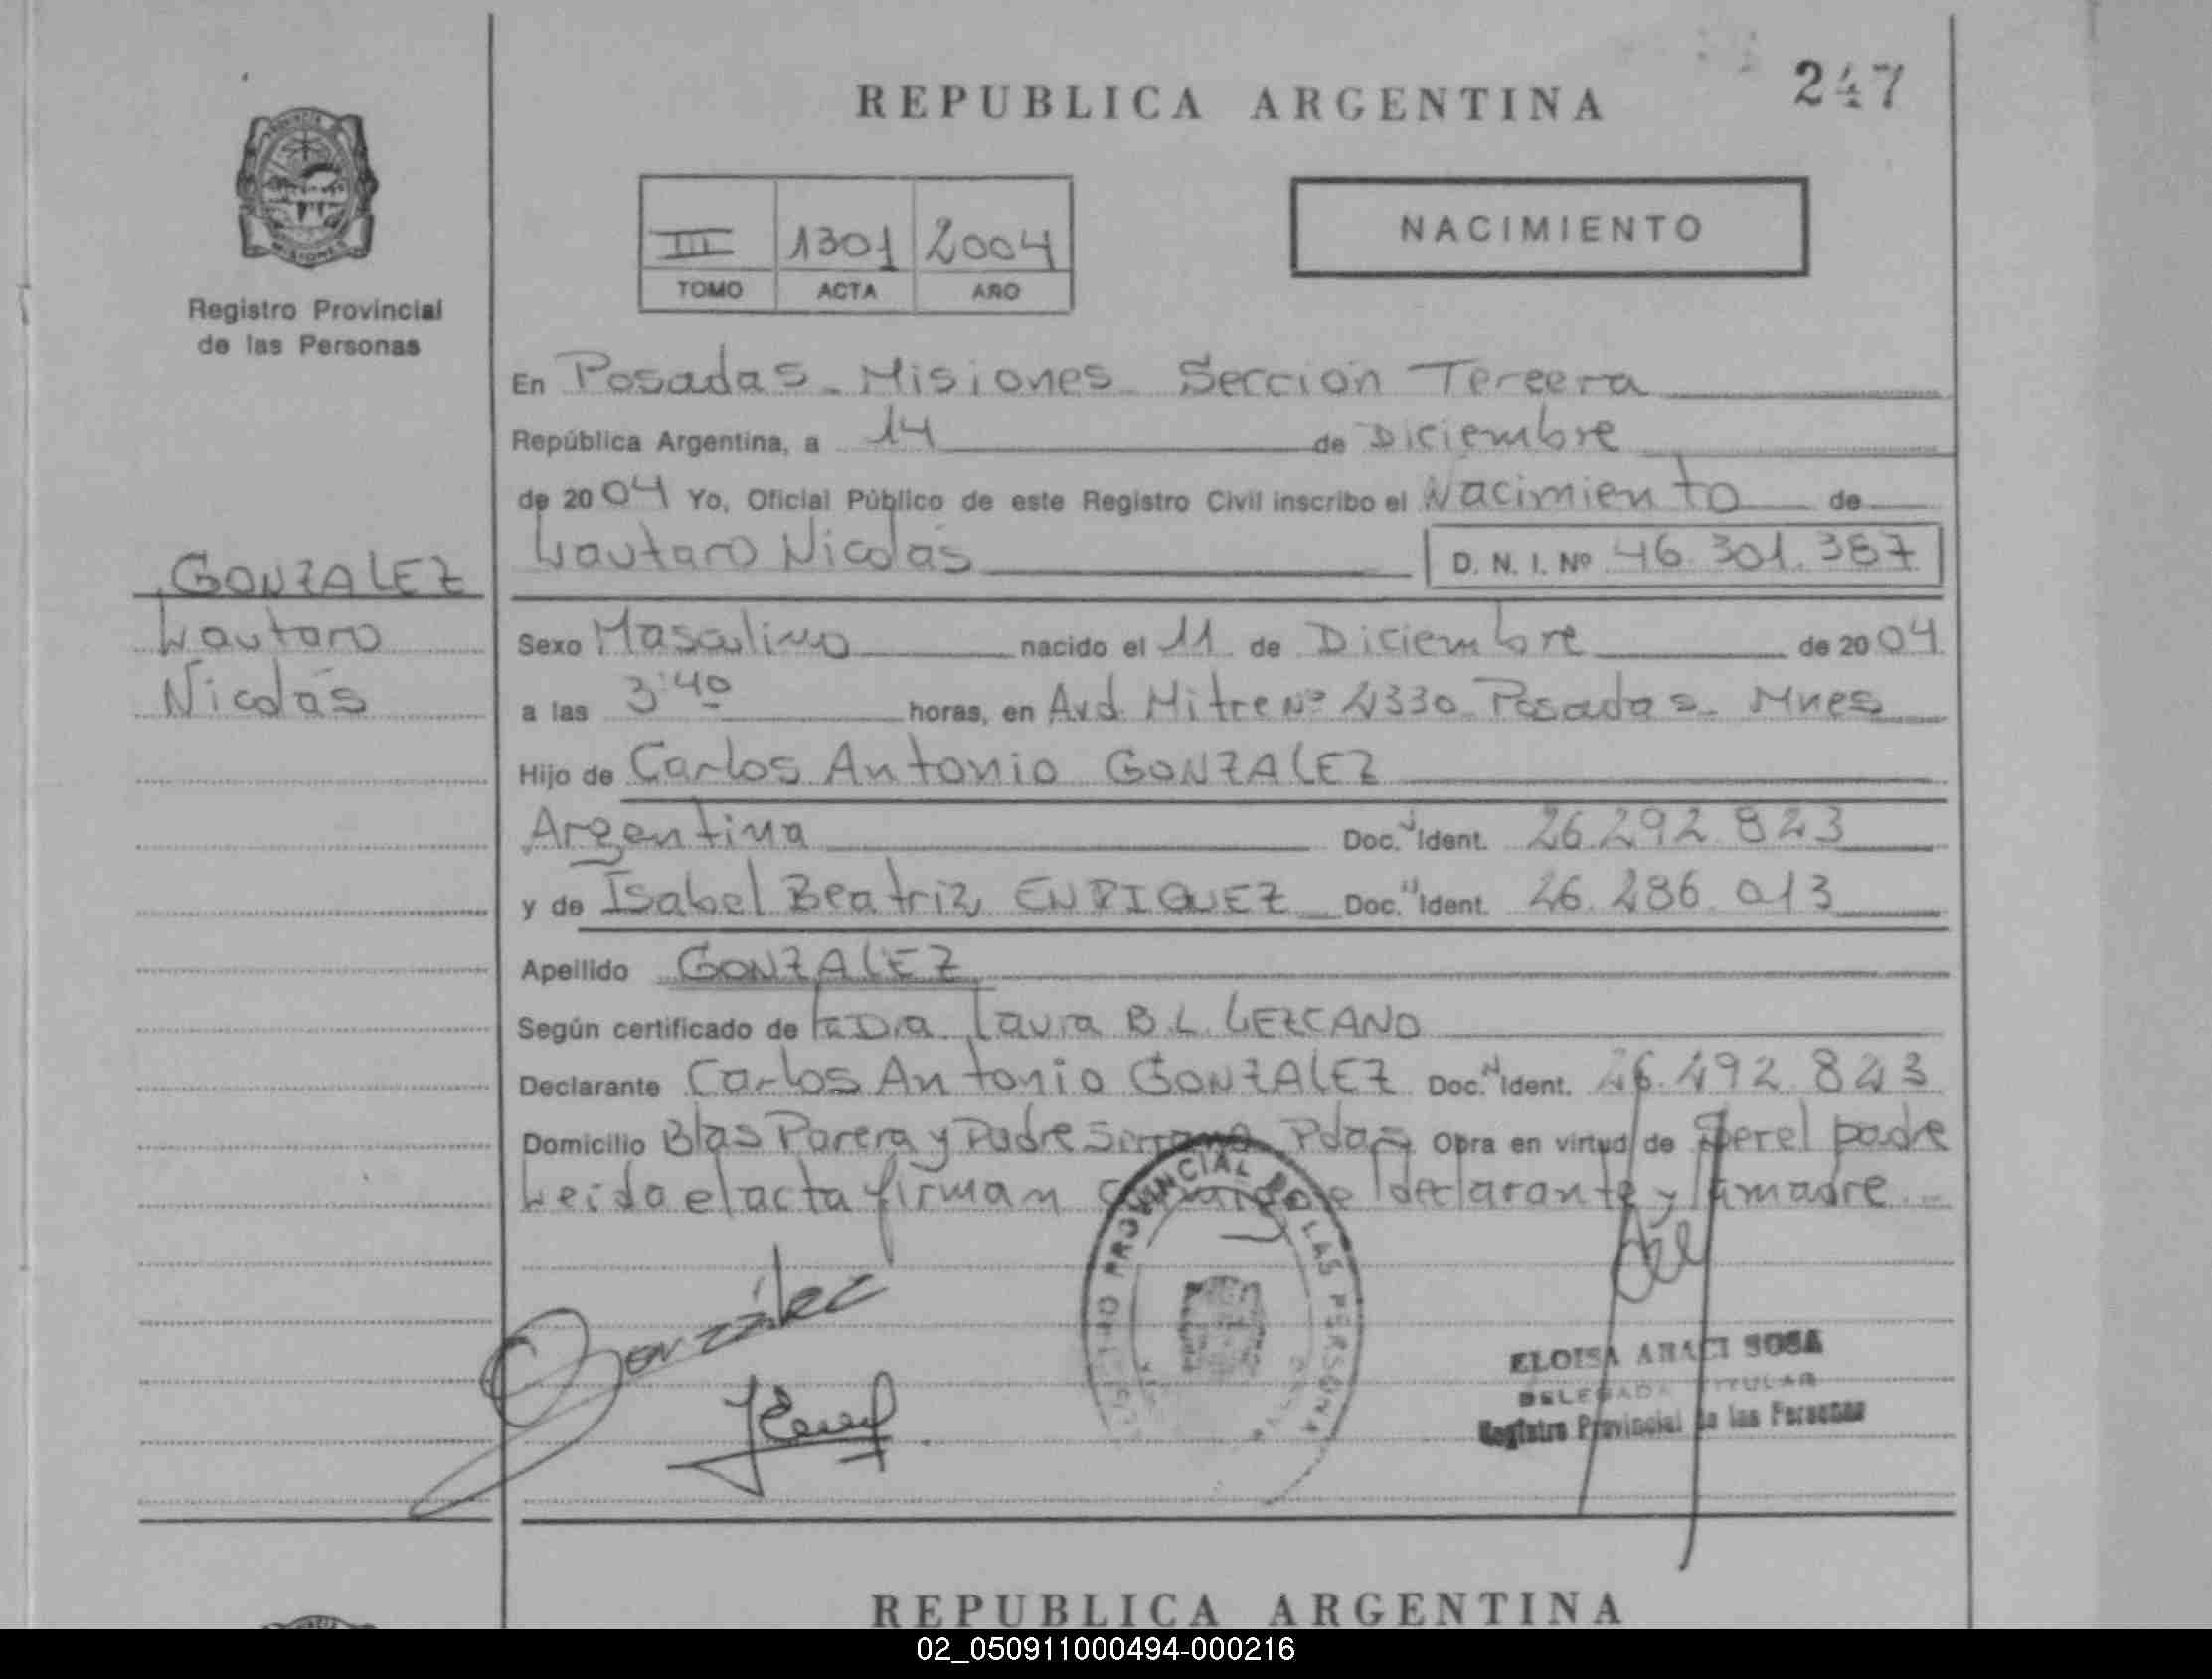 247
REPUBLICA ARGENTINA
PROVINCIA
MISIONES
Registro Provincial
de las Personas
III 1301 2004
TOMO ACTA AÑO
NACIMIENTO
En Posadas - Misiones - Sección Tercera
República Argentina, a 14 de Diciembre
de 2004 Yo, Oficial Público de este Registro Civil inscribo el Nacimiento de
Lautaro Nicolás D. N. I. Nº 46.301.387
GONZALEZ
Lautaro
Nicolás
Sexo Masculino nacido el 11 de Diciembre de 2004
a las 3:40 horas, en Avd. Mitre Nº 2330 Posadas - Mnes
Hijo de Carlos Antonio GONZALEZ
Argentina Doc. Ident. 26.292.823
y de Isabel Beatriz ENRIQUEZ Doc. Ident. 26.286.013
Apellido GONZALEZ
Según certificado de la Dra Laura B. L. LEZCANO
Declarante Carlos Antonio GONZALEZ Doc. Ident. 26.292.823
Domicilio Blas Parera y Padre Serrano Pdas Obra en virtud de Ser el padre
Leida el acta firman el declarante y la madre
González
REGISTRO PROVINCIAL DE LAS PERSONAS
ELOISA ARACI SOSA
DELEGADA TITULAR
Registro Provincial de las Personas
REPUBLICA ARGENTINA
02_050911000494-000216